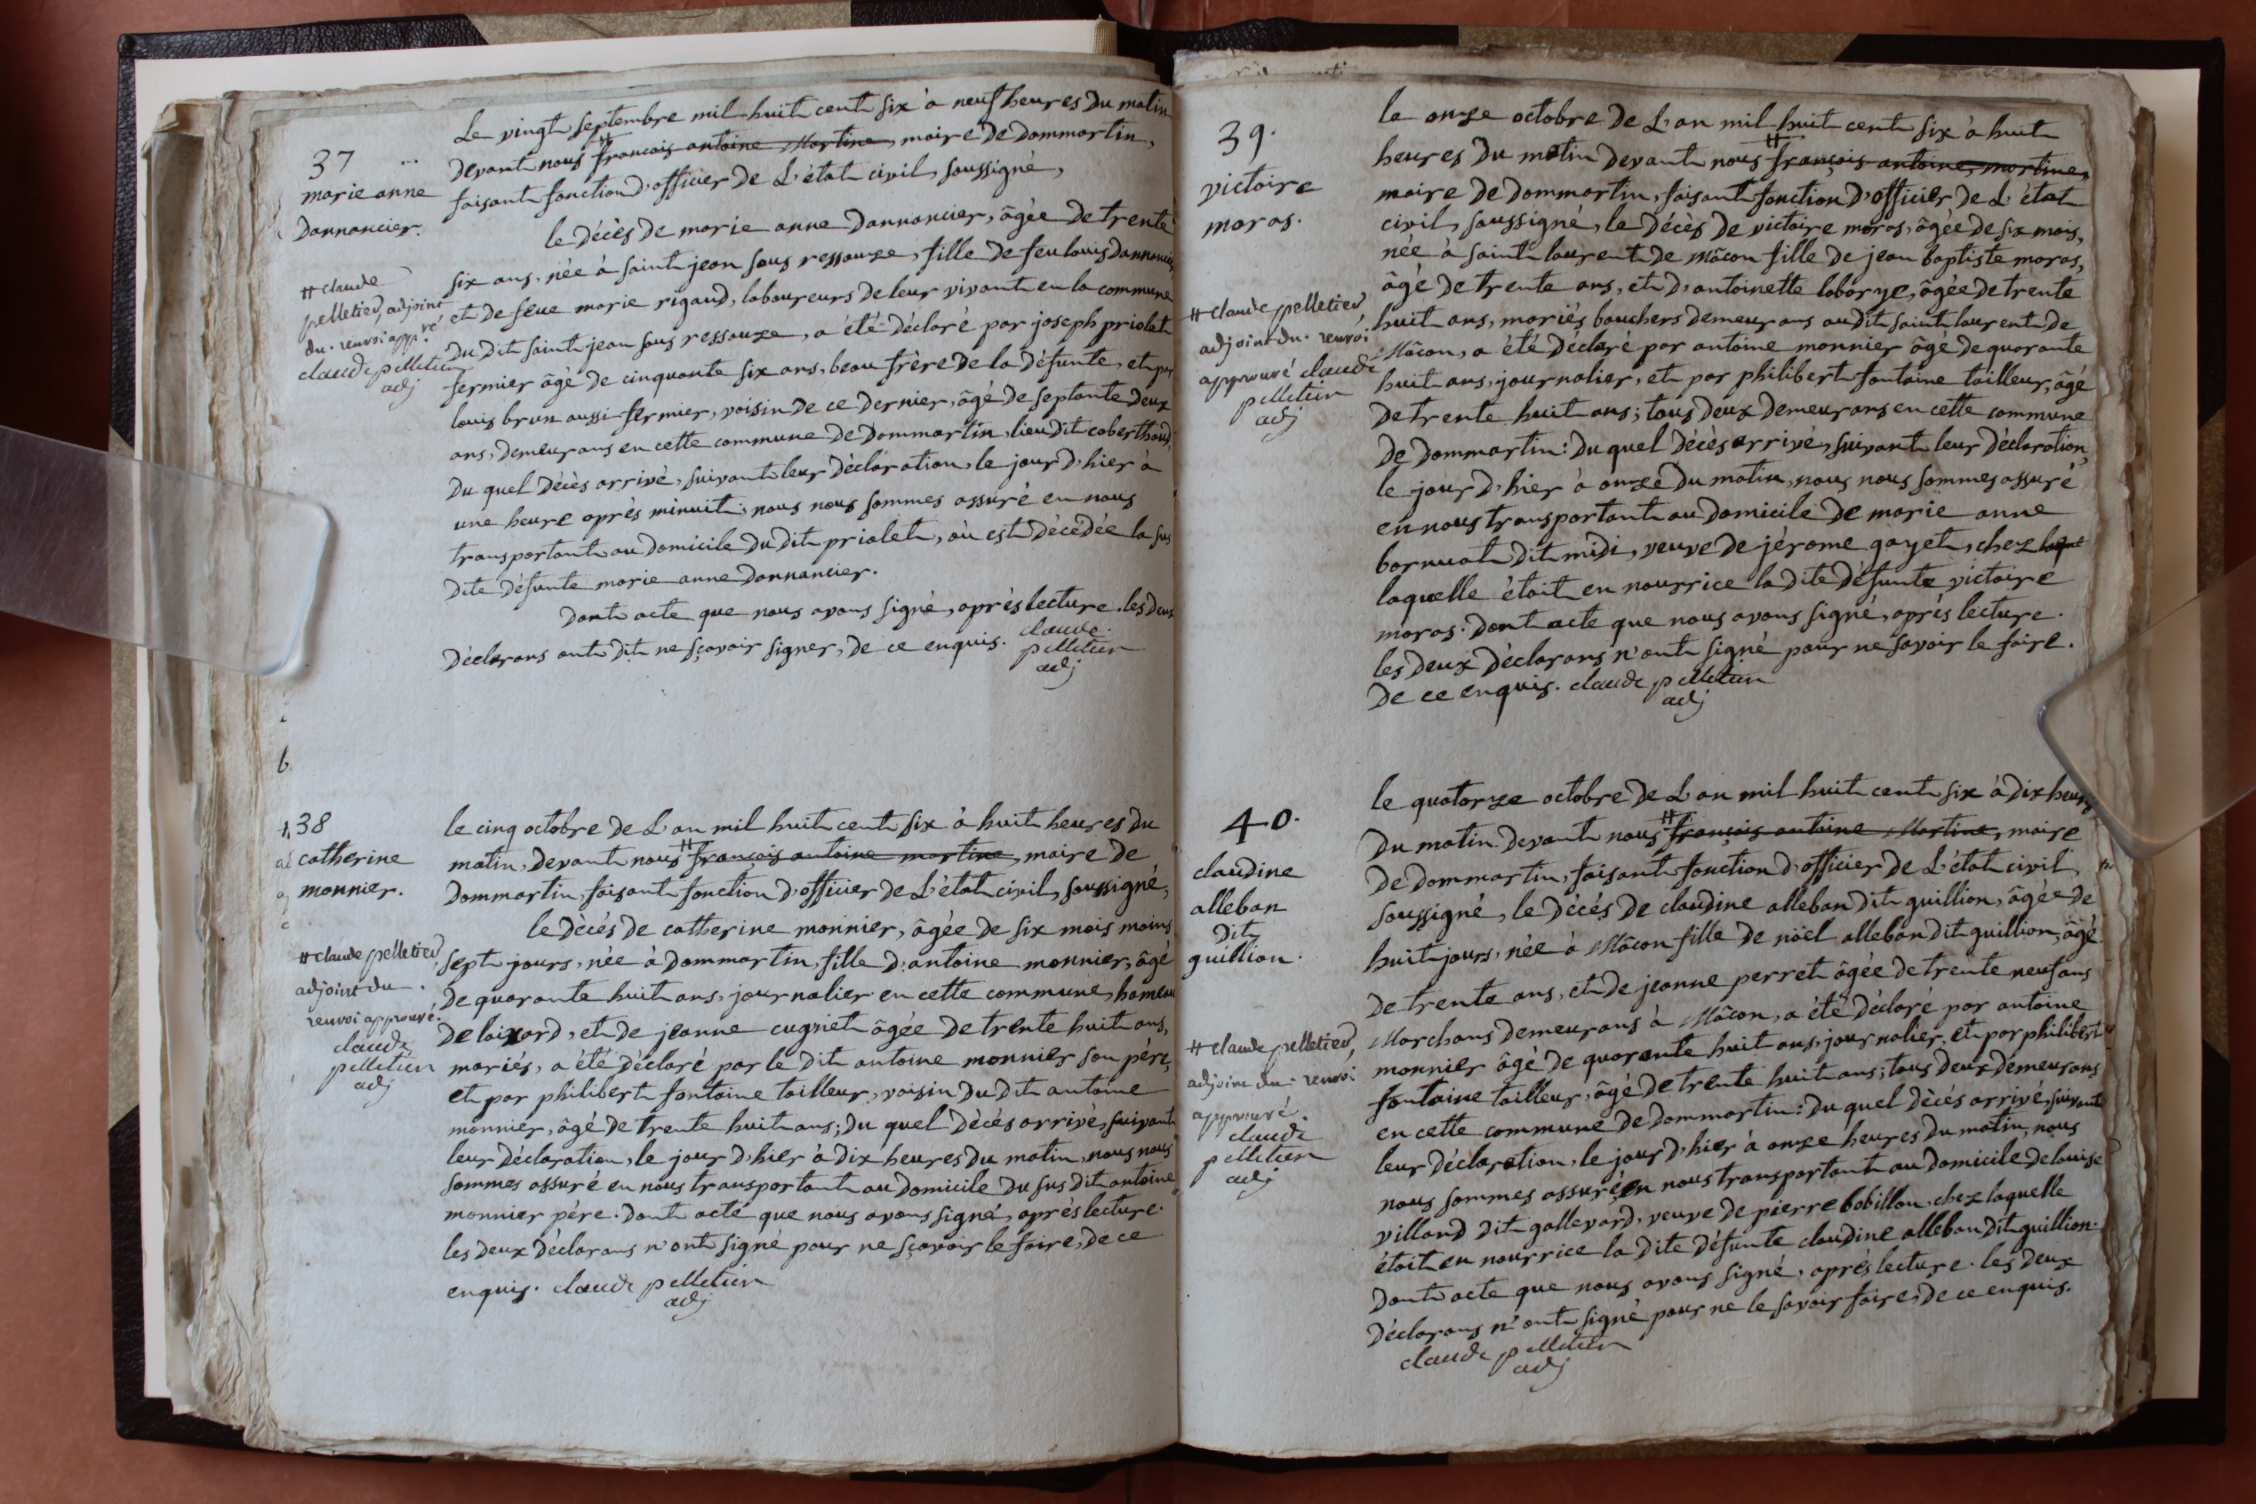 37
marie anne
Dannancier.
# claude
pelletier, adjoint
du. renvoi app.ré
claude pelletier
adj
Le vingt septembre mil huit cent six à neuf heures Du matin
Devant nous # françois antoine Martine, maire De Dommartin,
faisant fonction D'officier De L'état civil, soussigné,
le Décès De marie anne Dannancier, âgée De trente
six ans, née à saint jean sous ressouze, fille De feu louis Dannancier
et De feue marie rigaud, laboureurs De leur vivant en la commune
Du Dit saint jean sous ressouze, a été Déclaré par joseph priolet
fermier âgé De cinquante six ans, beau frère De la Défunte, et par
louis brun aussi fermier, voisin De ce Dernier, âgé De septante Deux
ans, Demeurans en cette commune De Dommartin, lieu Dit coberthoud,
Du quel Décès arrivé, suivant leur Déclaration, le jour D'hier à
une heure après minuit, nous nous sommes assuré en nous
transportant au Domicile Du Dit priolet, où est Décédée la sus
Dite Défunte marie anne Dannancier.
Dont acte que nous avons signé, après lecture. les Deux
Déclarans ont Dit ne sçavoir signer, De ce enquis. claude
pelletier
adj
38
catherine
monnier.
# claude pelletier,
adjoint du .
renvoi approuvé.
claude
pelletier
adj
le cinq octobre De L'an mil huit cent six à huit heures Du
matin, Devant nous # françois antoine martine, maire De
Dommartin, faisant fonction D'officier De L'état civil, soussigné,
le Décès De catherine monnier, âgée De six mois moins
sept jours, née à Dommartin, fille D'antoine monnier, âgé
De quarante huit ans, journalier en cette commune, hameau
De loixard, et De jeanne cugniet âgée De trente huit ans,
mariés, a été Déclaré par le Dit antoine monnier son père,
et par philibert fontaine tailleur, voisin Du Dit antoine
monnier, âgé De trente huit ans; Du quel Décès arrivé, suivant
leur Déclaration, le jour D'hier à Dix heures Du matin, nous nous
sommes assuré en nous transportant au Domicile Du sus Dit antoine
monnier père. Dont acte que nous avons signé, après lecture.
les Deux Déclarans n'ont signé pour ne sçavoir le faire, De ce
enquis. claude pelletier
adj
39.
victoire
moras.
# claude pelletier,
adjoint du. renvoi
approuvé claude
pelletier
adj
le onze octobre De L'an mil huit cent six à huit
heures Du matin Devant nous # françois antoine, martine,
maire De Dommartin, faisant fonction D'officier De L'état
civil, soussigné, le Décès De victoire moras, âgée De six mois,
née à saint laurent De Mâcon fille De jean baptiste moras,
âgé De trente ans, et D'antoinette laborye, âgée De trente
huit ans, mariés bouchers Demeurans audit saint laurent De
Mâcon, a été Déclaré par antoine monnier âgé De quarante
huit ans, journalier, et par philibert fontaine tailleur, âgé
De trente huit ans; tous Deux Demeurans en cette commune
De Dommartin: Du quel Décès arrivé, suivant leur Déclaration,
le jour D'hier à onze Du matin, nous nous sommes assuré
en nous transportant au Domicile De marie anne
bornuat Dit midi, veuve De jérome gayet, chez
laquelle étoit en nourrice la Dite Défunte victoire
moras. Dont acte que nous avons signé, après lecture.
les Deux Déclarans n'ont signé pour ne savoir le faire.
De ce enquis. claude pelletier
adj
40.
claudine
alleban
Dit
guillion.
# claude pelletier,
adjoint du. renvoi
approuvé.
claude
pelletier
adj
le quatorze octobre De L'an mil huit cent six à Dix heures
Du matin. Devant nous # françois antoine Martine, maire
De Dommartin, faisant fonction D'officier De L'état civil
soussigné, le Décès De claudine alleban Dit guillion, âgée De
huit jours, née à Mâcon fille De nöel alleban Dit guillion, âgé
De trente ans, et De jeanne perret âgée De trente neuf ans
Marchans Demeurans à Mâcon, a été Déclaré par antoine
monnier âgé De quarante huit ans, journalier, et par philibert
fontaine tailleur, âgé De trente huit ans; tous Deux Demeurans
en cette commune De Dommartin: Du quel Décès arrivé, suivant
leur Déclaration, le jour D'hier à onze heures Du matin, nous
nous sommes assuré en nous transportant au Domicile De louise
villard Dit gallevard, veuve De pierre bobillon, chez laquelle
étoit en nourrice la Dite Défunte claudine alleban Dit guillion.
Dont acte que nous avons signé, après lecture. les Deux
Déclarans n'ont signé pour ne le savoir faire, De ce enquis.
claude pelletier
adj